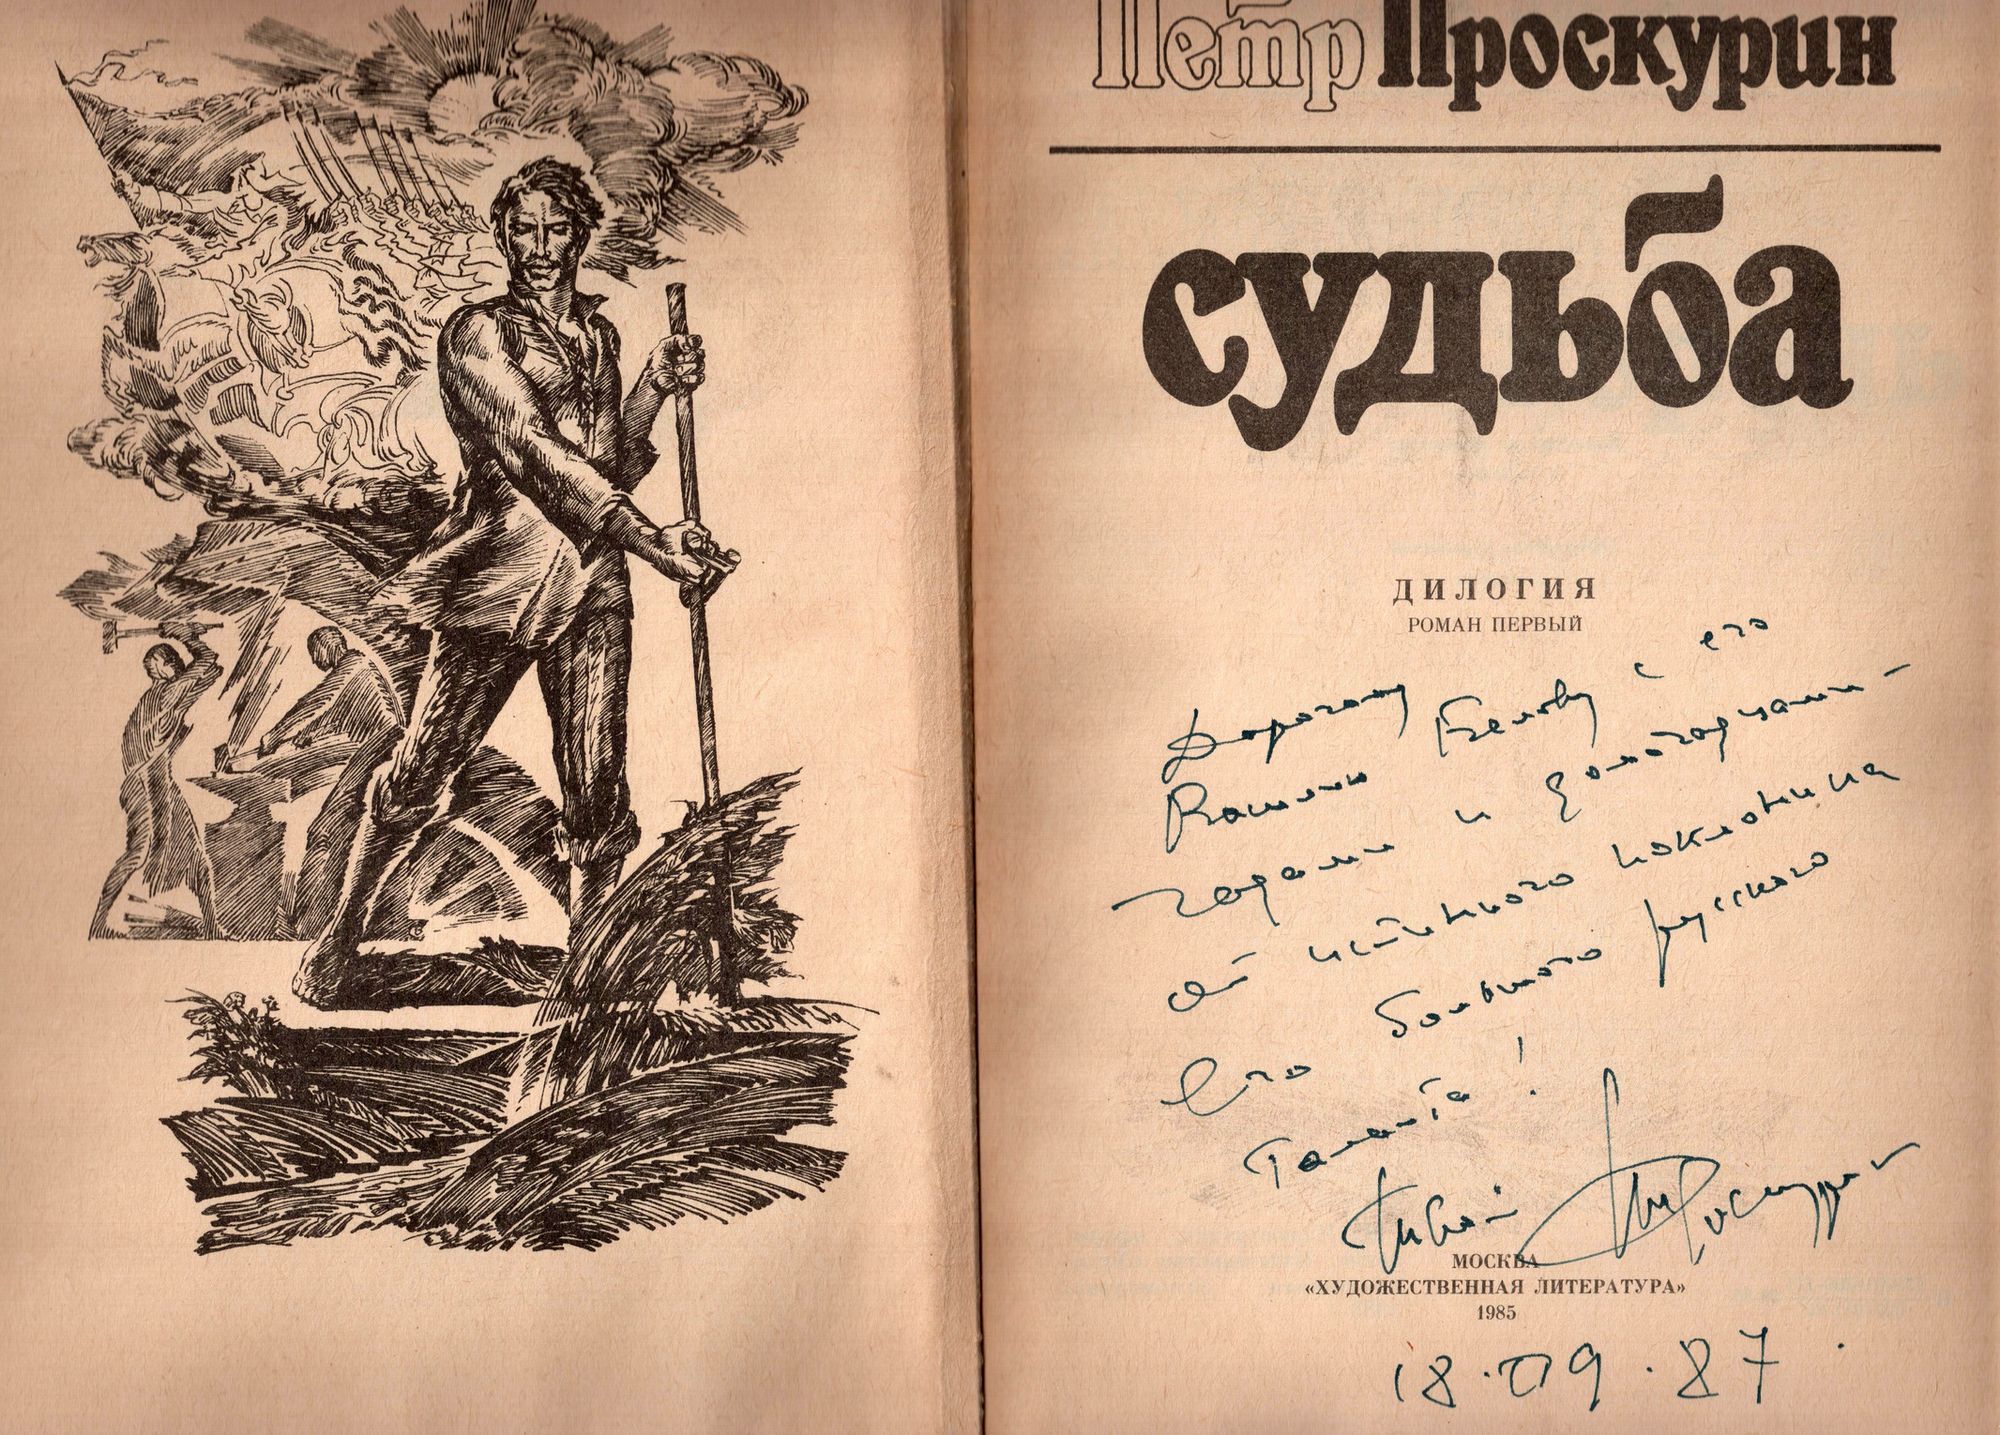 Петр Проскурин
судьба
ДИЛОГИЯ
РОМАН ПЕРВЫЙ
Дорогому
Василию Белову с его
годами и
от истинного поклонника
его большого русского
таланта!
Твой Проскурин
МОСКВА
«ХУДОЖЕСТВЕННАЯ ЛИТЕРАТУРА»
1985
18.09.87.